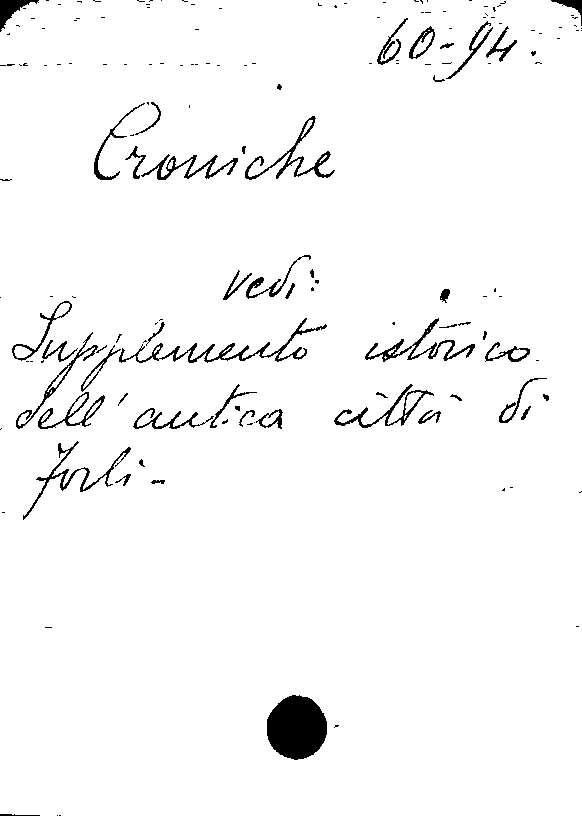 60-94.
Croniche
vedi:
Supplemento istorico
dell'antica città di
Forlì-